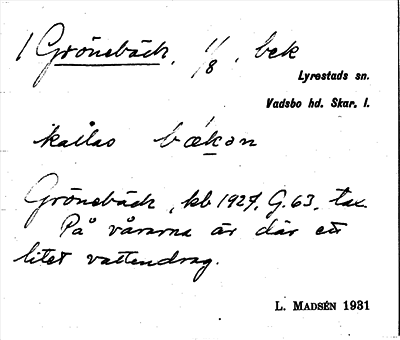 1 Grönebäck, 1/8, bek
Lyrestads sn.
Vadsbo hd. Skar. l.
kallas bækən
Grönebäck, kb 1927, G. 63, tax.
På vårarna är där ett
litet vattendrag.
L. MADSÉN 1931